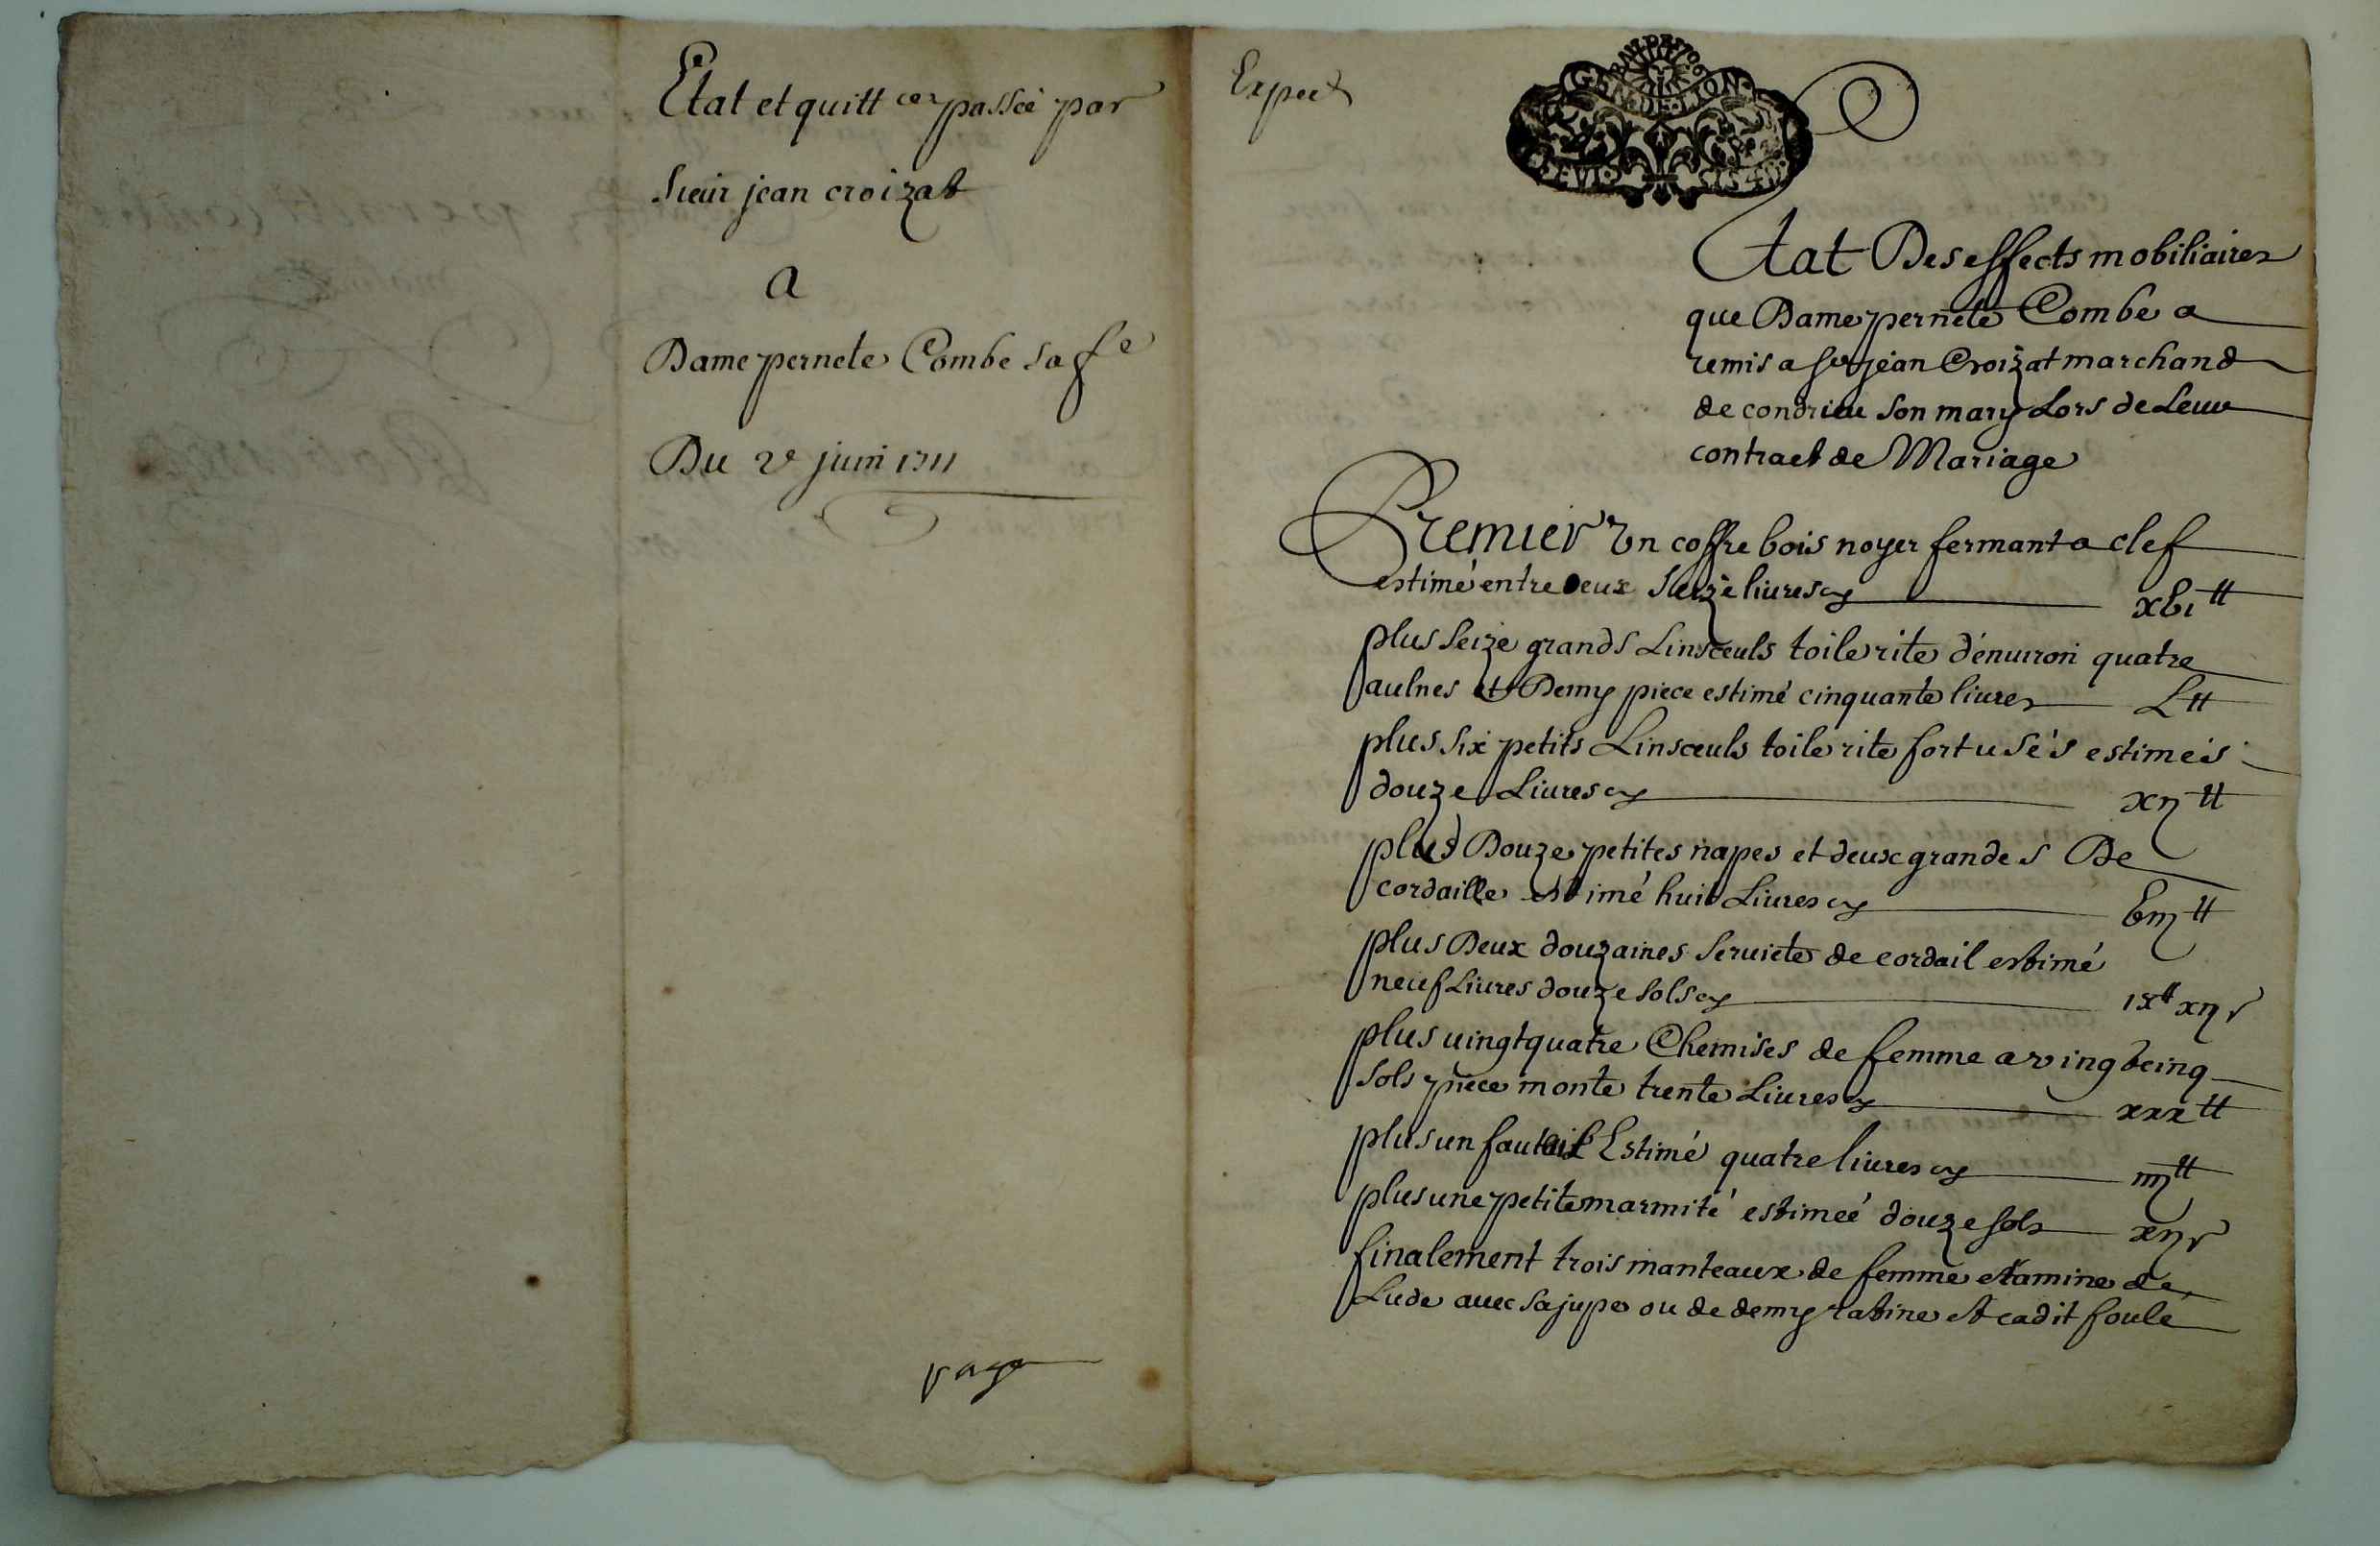 Etat et quitt ces passée par
Sieur jean croizat
A
Dame pernete Combe sa fe
Du 2e juin 1711
Expect
GEN DE LION
Etat Des effects mobiliaires
que Dame pernete Combe a
remis a sr jean Croizat marchand
de condrieu son mary Lors de Leur
contract de Mariage
Premier Un coffre bois noyer fermant a clef
estimé entre deux seize livres cy xvi tt
plus seize grands Linsceuls toile rite d'enuiron quatre
aulnes et Demy piece estimé cinquante liures L tt
plus six petits Linsceuls toile rite fort usés estimés
douze Liures cy xij tt
plus Douze petites napes et deux grandes De
cordaille estimé huit Liures cy viij tt
plus Deux douzaines seruiete de cordail estimé
neuf Liures douze sols cy ix tt xij s
plus uingt quatre Chemises de femme a vingt cinq
sols piece monte trente Liures cy xxx tt
plus un fauteuil Estimé quatre liures cy iiij tt
plus une petite marmite estimeé douze sols xij s
finalement trois manteaux de femme etamine de
Lude auec sa jupe ou de demy ratine et cadit foule